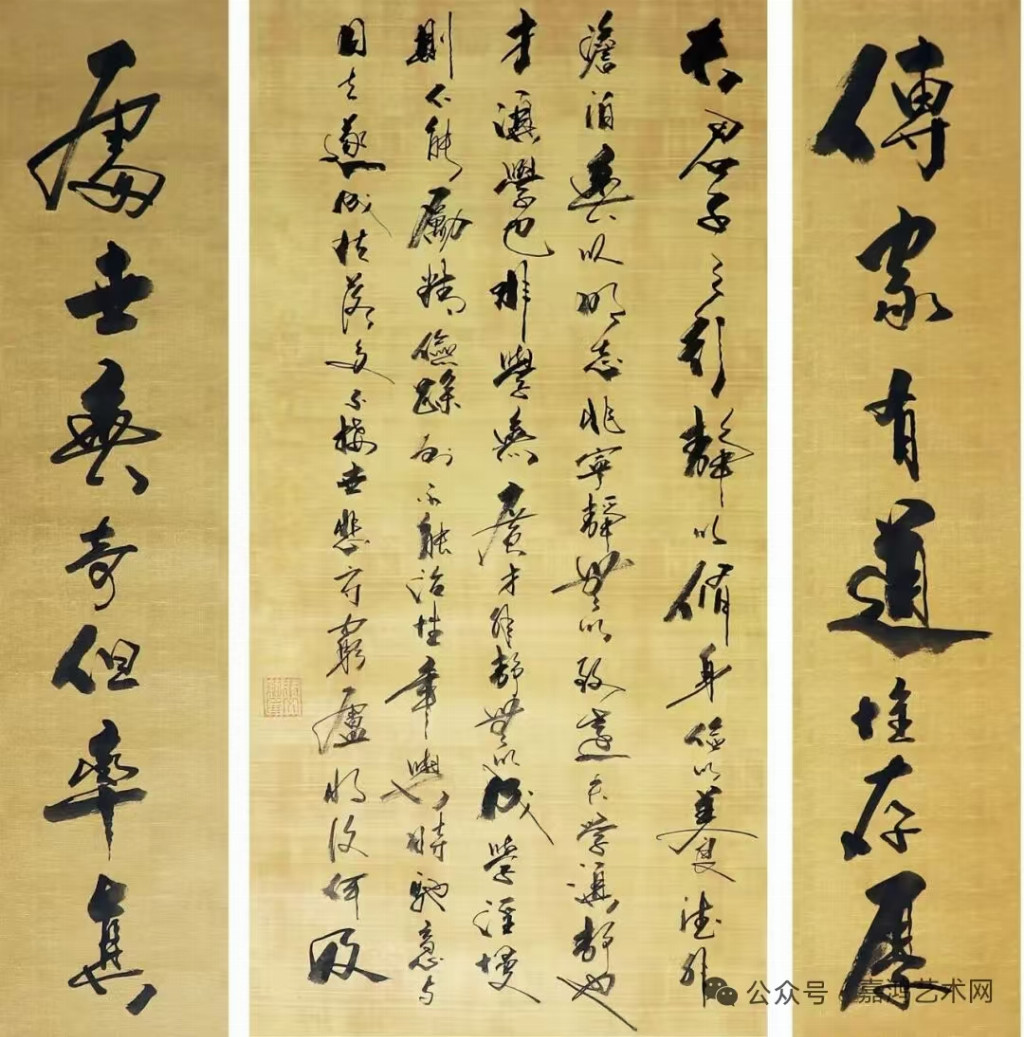 傳家有道惟存厚
夫君子之行靜以脩身儉以養德非
澹泊無以明志非寧靜無以致遠夫學須靜也
才須學也非學無廣才非靜無以成學淫慢
則不能勵精險躁則不能治性年與時馳意与
日去遂成枯落多不接世悲守窮廬將復何及
處世無奇但率真
公众号 · 嘉鸿艺术网